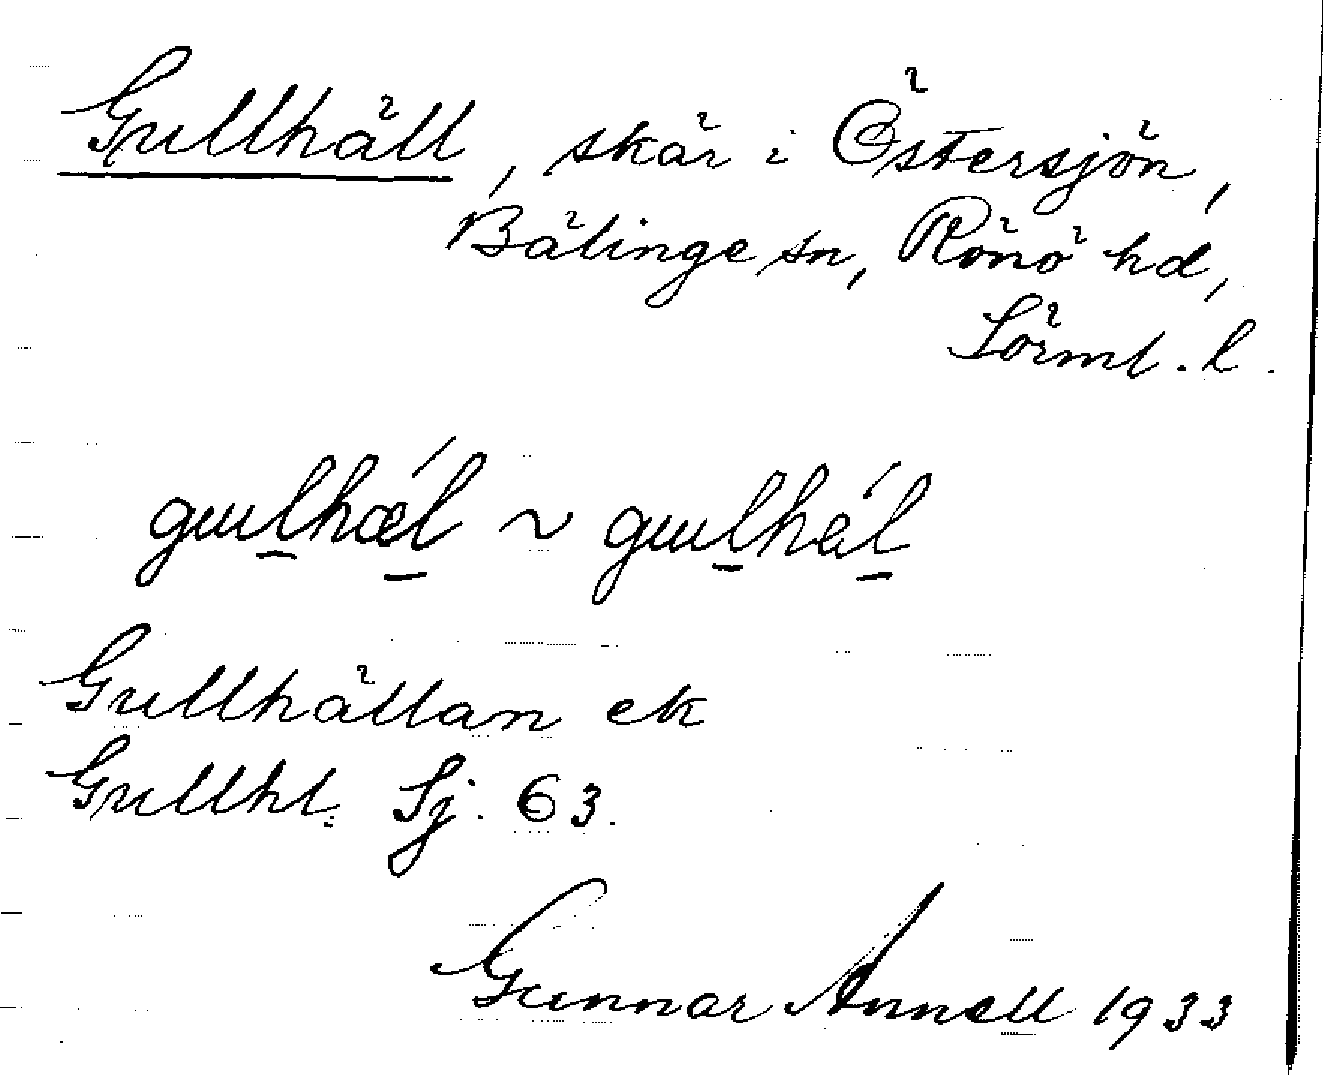 Gullhäll, skär i Östersjön,
Bälinge sn, Rönö hd,
Sörml. l.
gɯl̲hæ̀l̲ ~ gɯl̲hál̲
Gullhällan ek
Gullhl. Sj. 63.
Gunnar Annell 1933